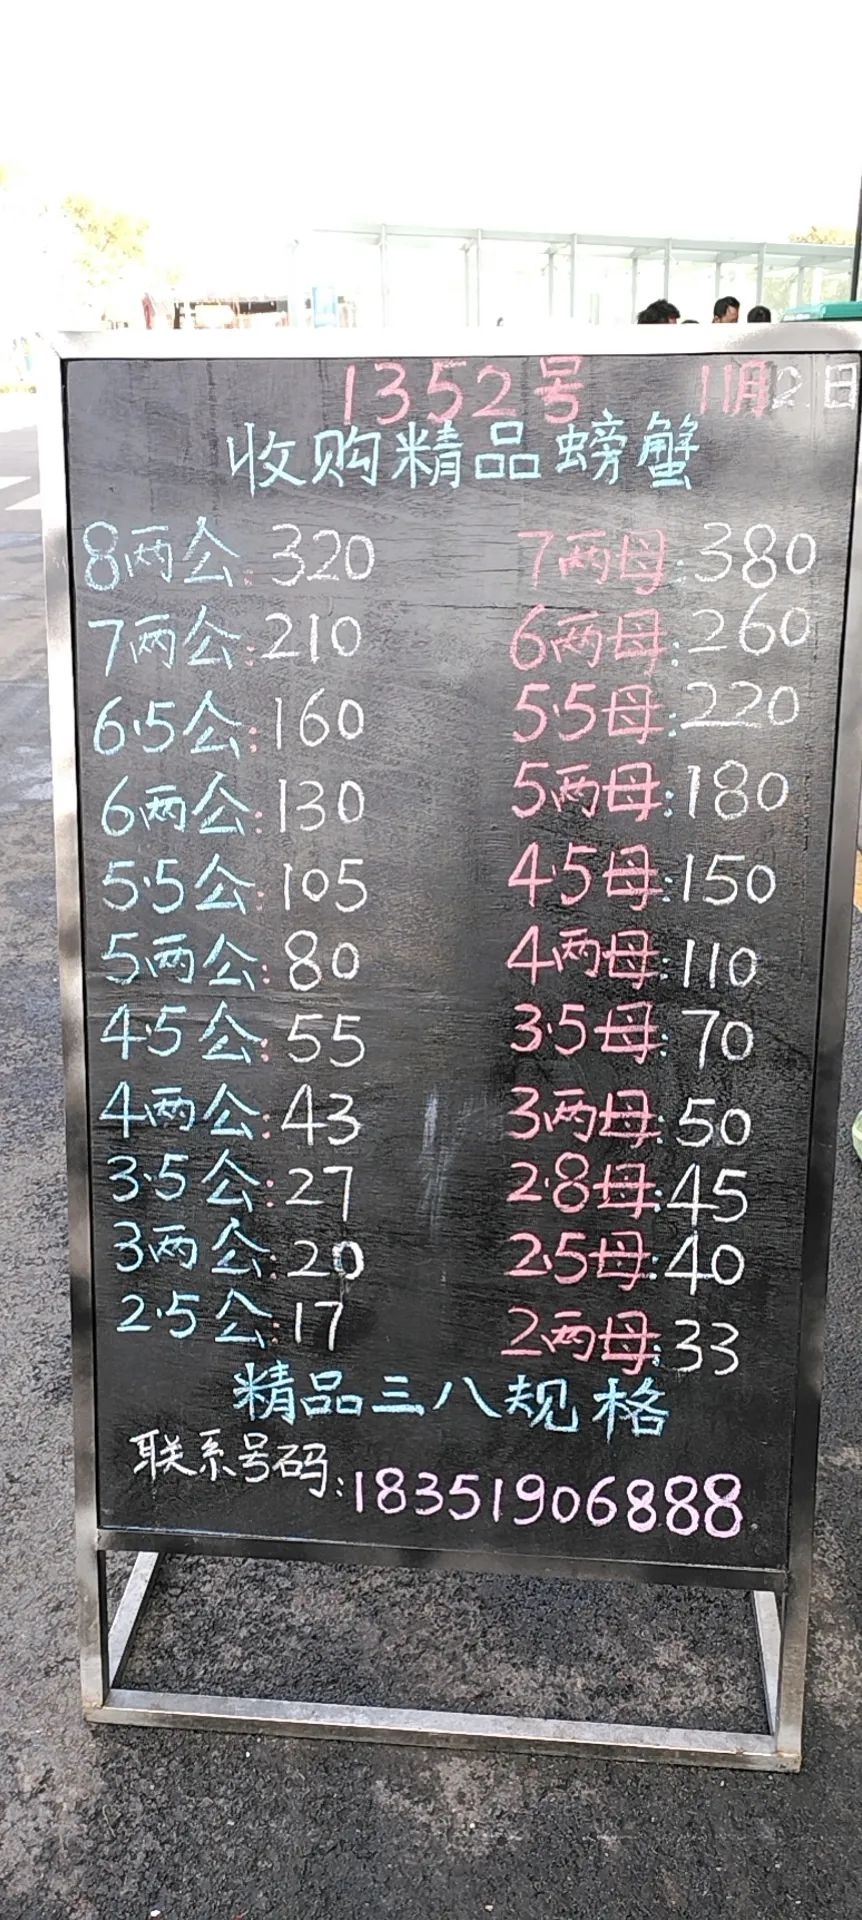 1352号 11月2日
收购精品螃蟹
8两公:320 7两母:380
7两公:210 6两母:260
6.5公:160 5.5母:220
6两公:130 5两母:180
5.5公:105 4.5母:150
5两公:80 4两母:110
4.5公:55 3.5母:70
4两公:43 3两母:50
3.5公:27 2.8母:45
3两公:20 2.5母:40
2.5公:17 2两母:33
精品三八规格
联系号码:18351906888